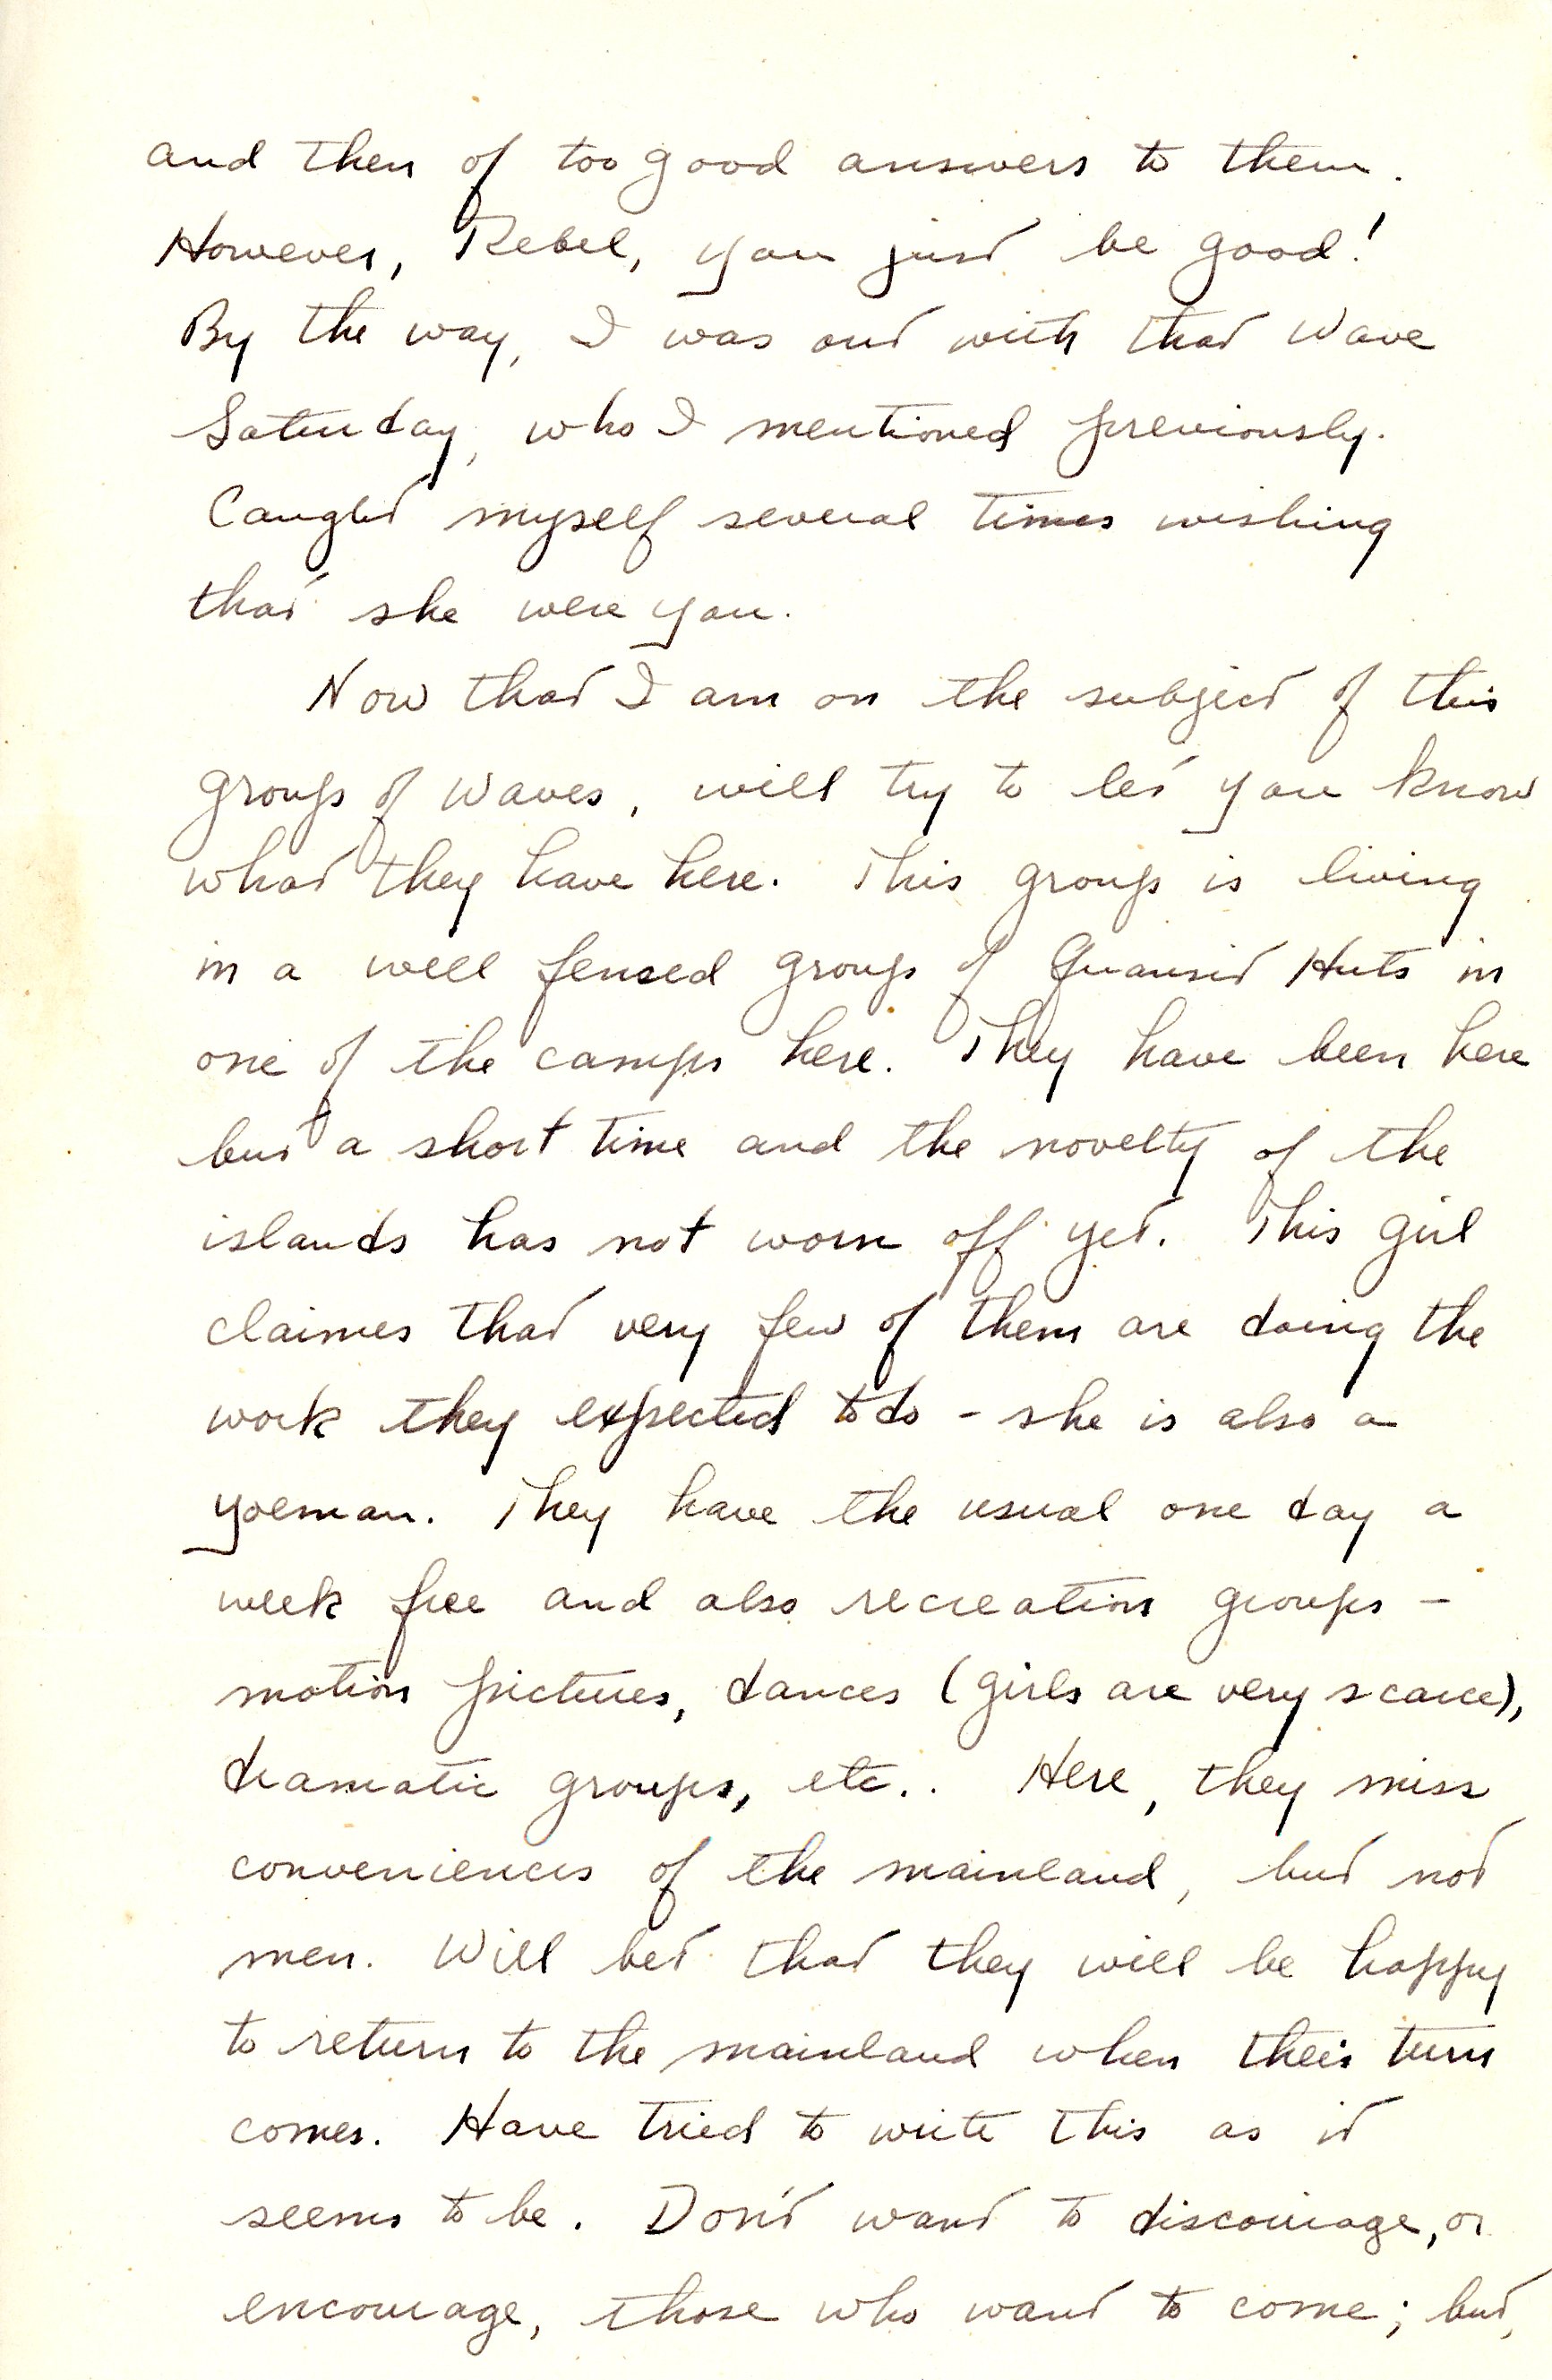 and then of too good answers to them.
However, Rebel, you just be good!
By the way, I was out with that Wave
Saturday, who I mentioned previously.
Caught myself several times wishing
that she were you.
Now that I am on the subject of this
group of Waves, will try to let you know
what they have here. This group is living
in a well fenced group of Quansit Huts in
one of the camps here. They have been here
but a short time and the novelty of the
islands has not worn off yet. This girl
claimes that very few of them are doing the
work they expected to do - she is also a
yoeman. They have the usual one day a
week free and also recreation groups -
motion pictures, dances (girls are very scarce),
dramatic groups, etc.. Here, they miss
conveniences of the mainland, but not
men. Will bet that they will be happy
to return to the mainland when their turn
comes. Have tried to write this as it
seems to be. Don't want to discourage, or
encourage, those who want to come; but,